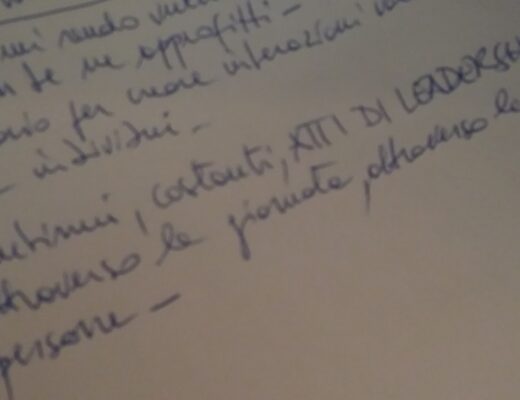 mi rendo vulne
se ne approfitti -
per more interazioni
- individui -
continui, costanti, ATTI DI LEADERSH
attraverso la giornata, attraverso le
persone -